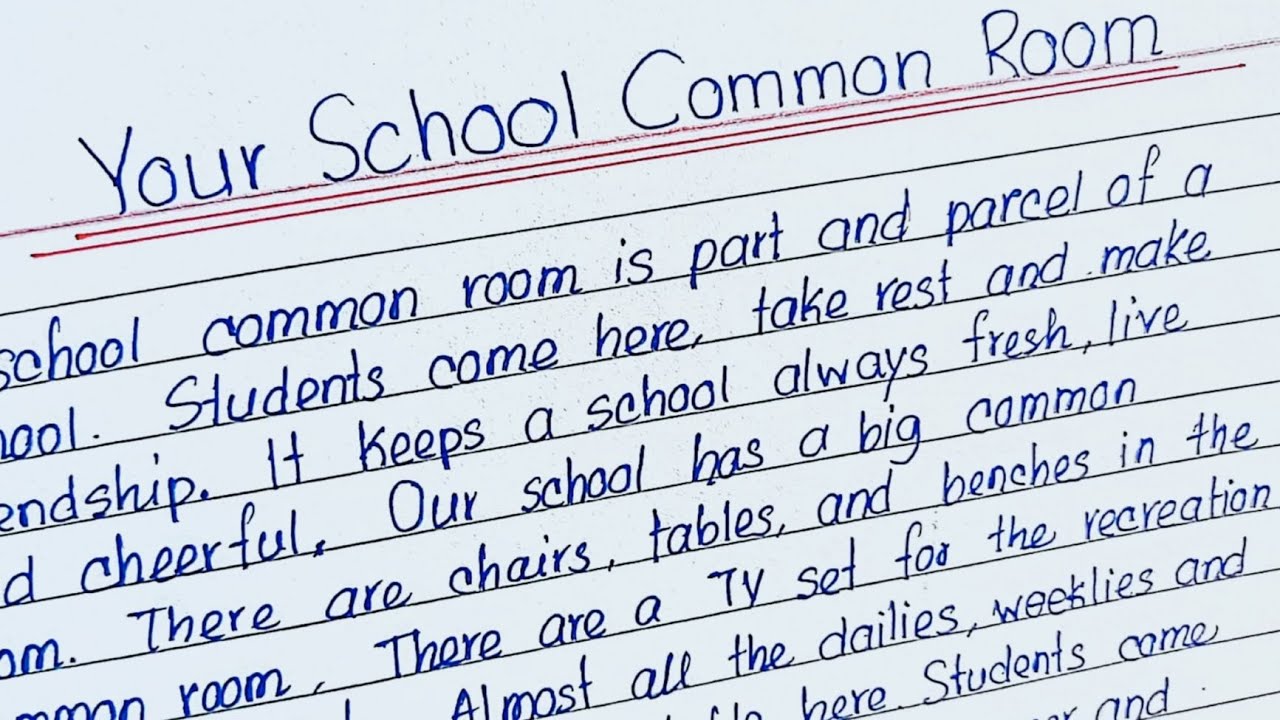 Your School Common Room
school common room is part and parcel of a
hool. Students come here, take rest and make
endship. It keeps a school always fresh, live
d cheerful. Our school has a big common
om. There are chairs, tables, and benches in the
mmon room. There are a TV set for the recreation
Almost all the dailies, weeklies and
here. Students come
and